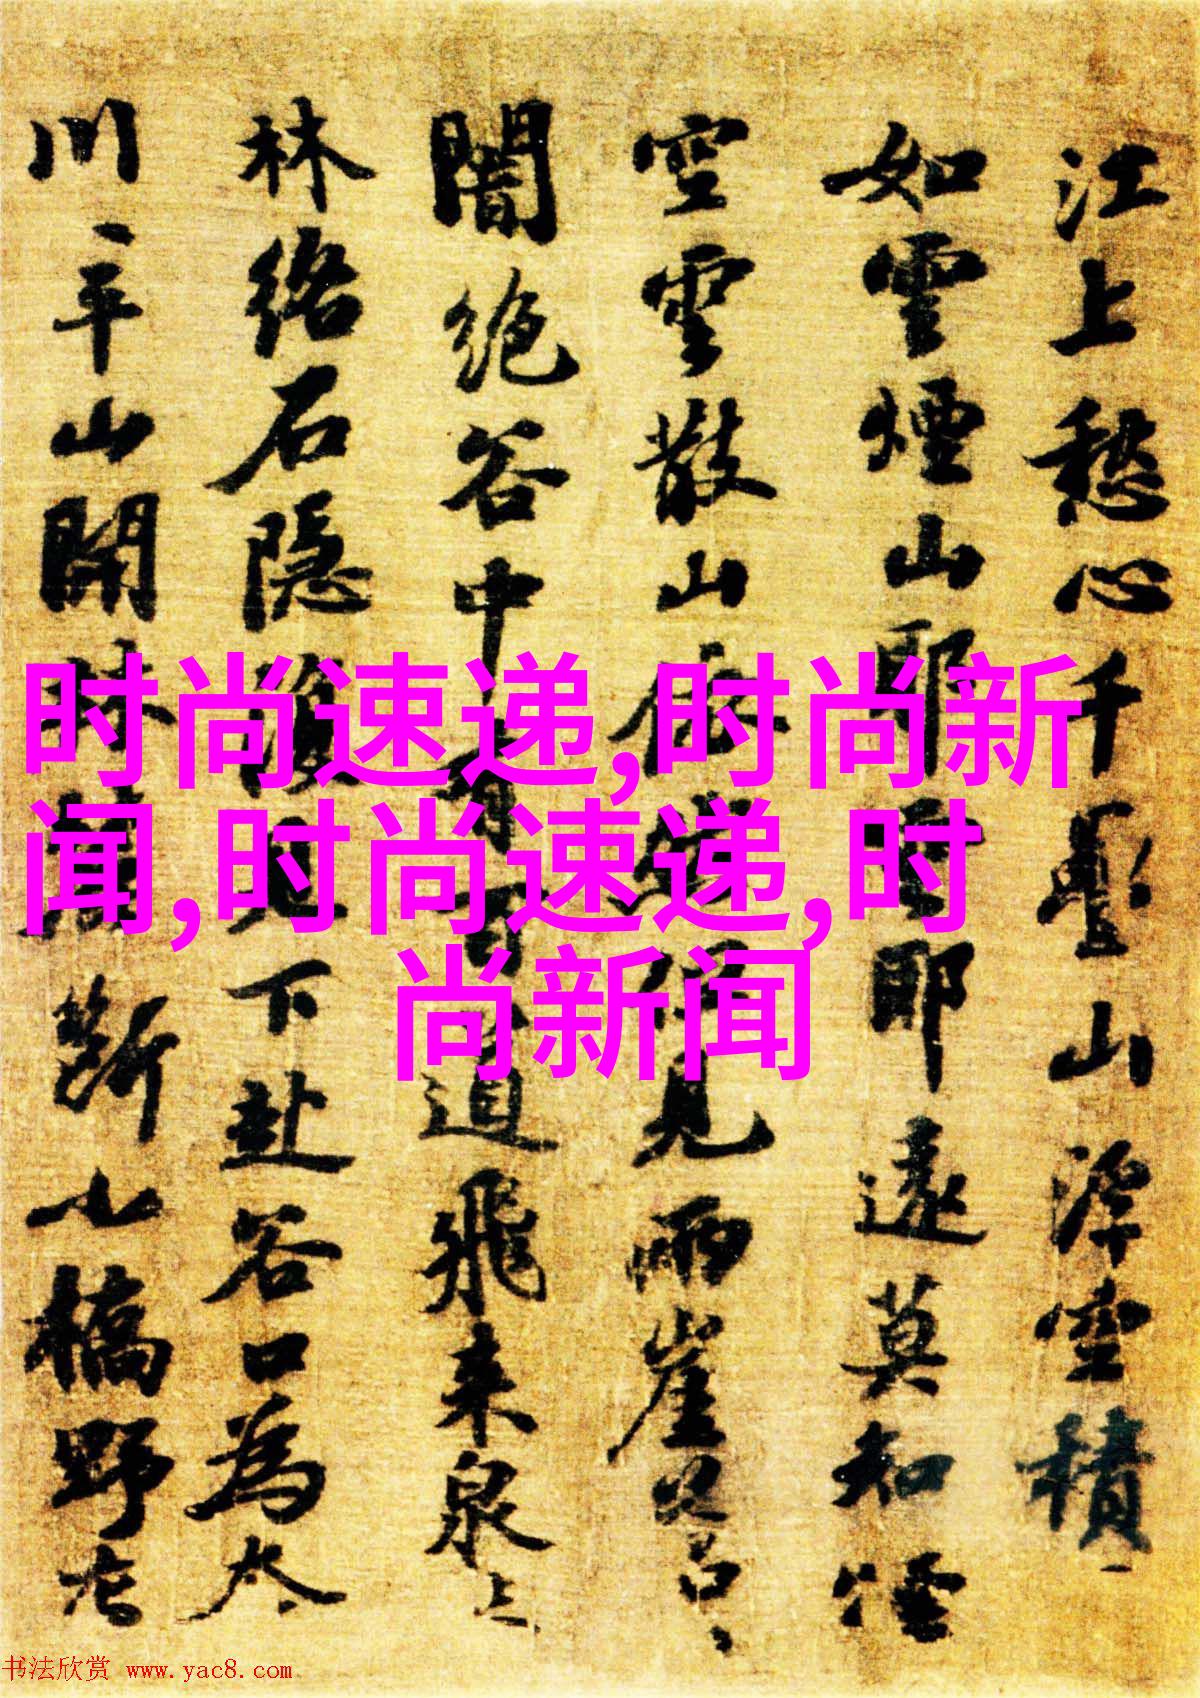 江上愁心千疊山浮空積
如雲煙山耶雲耶遠莫知煙
空雲散山依然但見兩崖
闇絕谷中有百道飛來泉
林絡石隱復見下赴谷口為
川平山開林麓斷小橋野店
时尚速递,时尚新
闻,时尚速递,时
尚新闻
书法欣赏 www.yac8.com